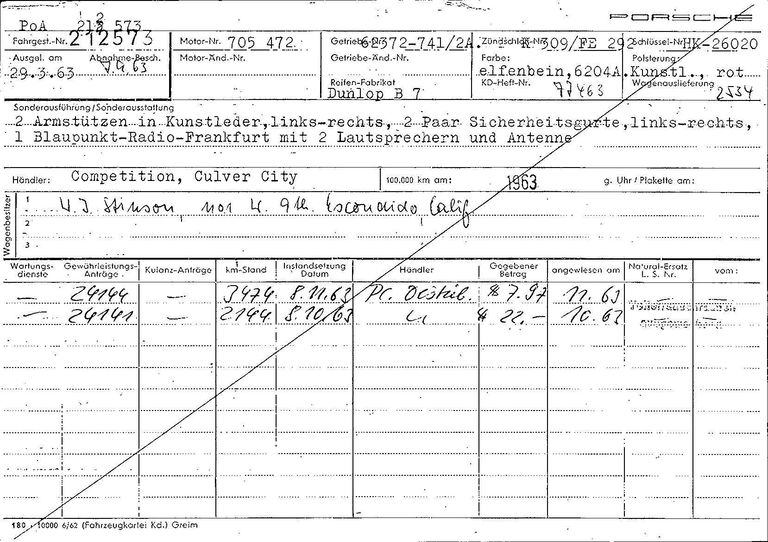 PORSCHE
PoA 212 573
Fahrgest.-Nr. 212573 Motor-Nr. 705 472 Getriebe-Nr. 62372-741/2A. Zündschloß-Nr. K 309/FE 292 Schlüssel-Nr. HK-26020
Ausgel. am Abnahme-Besch. Motor-Änd.-Nr. Getriebe-Änd.-Nr. Farbe: Polsterung:
29.3.63 7.4.63 elfenbein,6204A. Kunstl., rot
Reifen-Fabrikat KD-Heft-Nr. Wagenauslieferung
Dunlop B 7 77463 2534
Sonderausführung/Sonderausstattung
2 Armstützen in Kunstleder,links-rechts, 2 Paar Sicherheitsgurte,links-rechts,
1 Blaupunkt-Radio-Frankfurt mit 2 Lautsprechern und Antenne
Händler: Competition, Culver City 100.000 km am: 1963 g. Uhr/Plakette am:
Wagenbesitzer
1 W.J. Stinson, W. 9th. Escondido, Calif
2
3
Wartungsdienste Gewährleistungs-Anträge Kulanz-Anträge km-Stand Instandsetzung Datum Händler Gegebener Betrag angewiesen am Natural-Ersatz L. S. Nr. vom:
— 24144 — 3474 8.11.63 PC. Distrib. $ 7.97 11.63 — —
— 24141 — 2144 8.10.63 " $ 22,- 10.63
180 - 10000 6/62 (Fahrzeugkartei Kd.) Greim